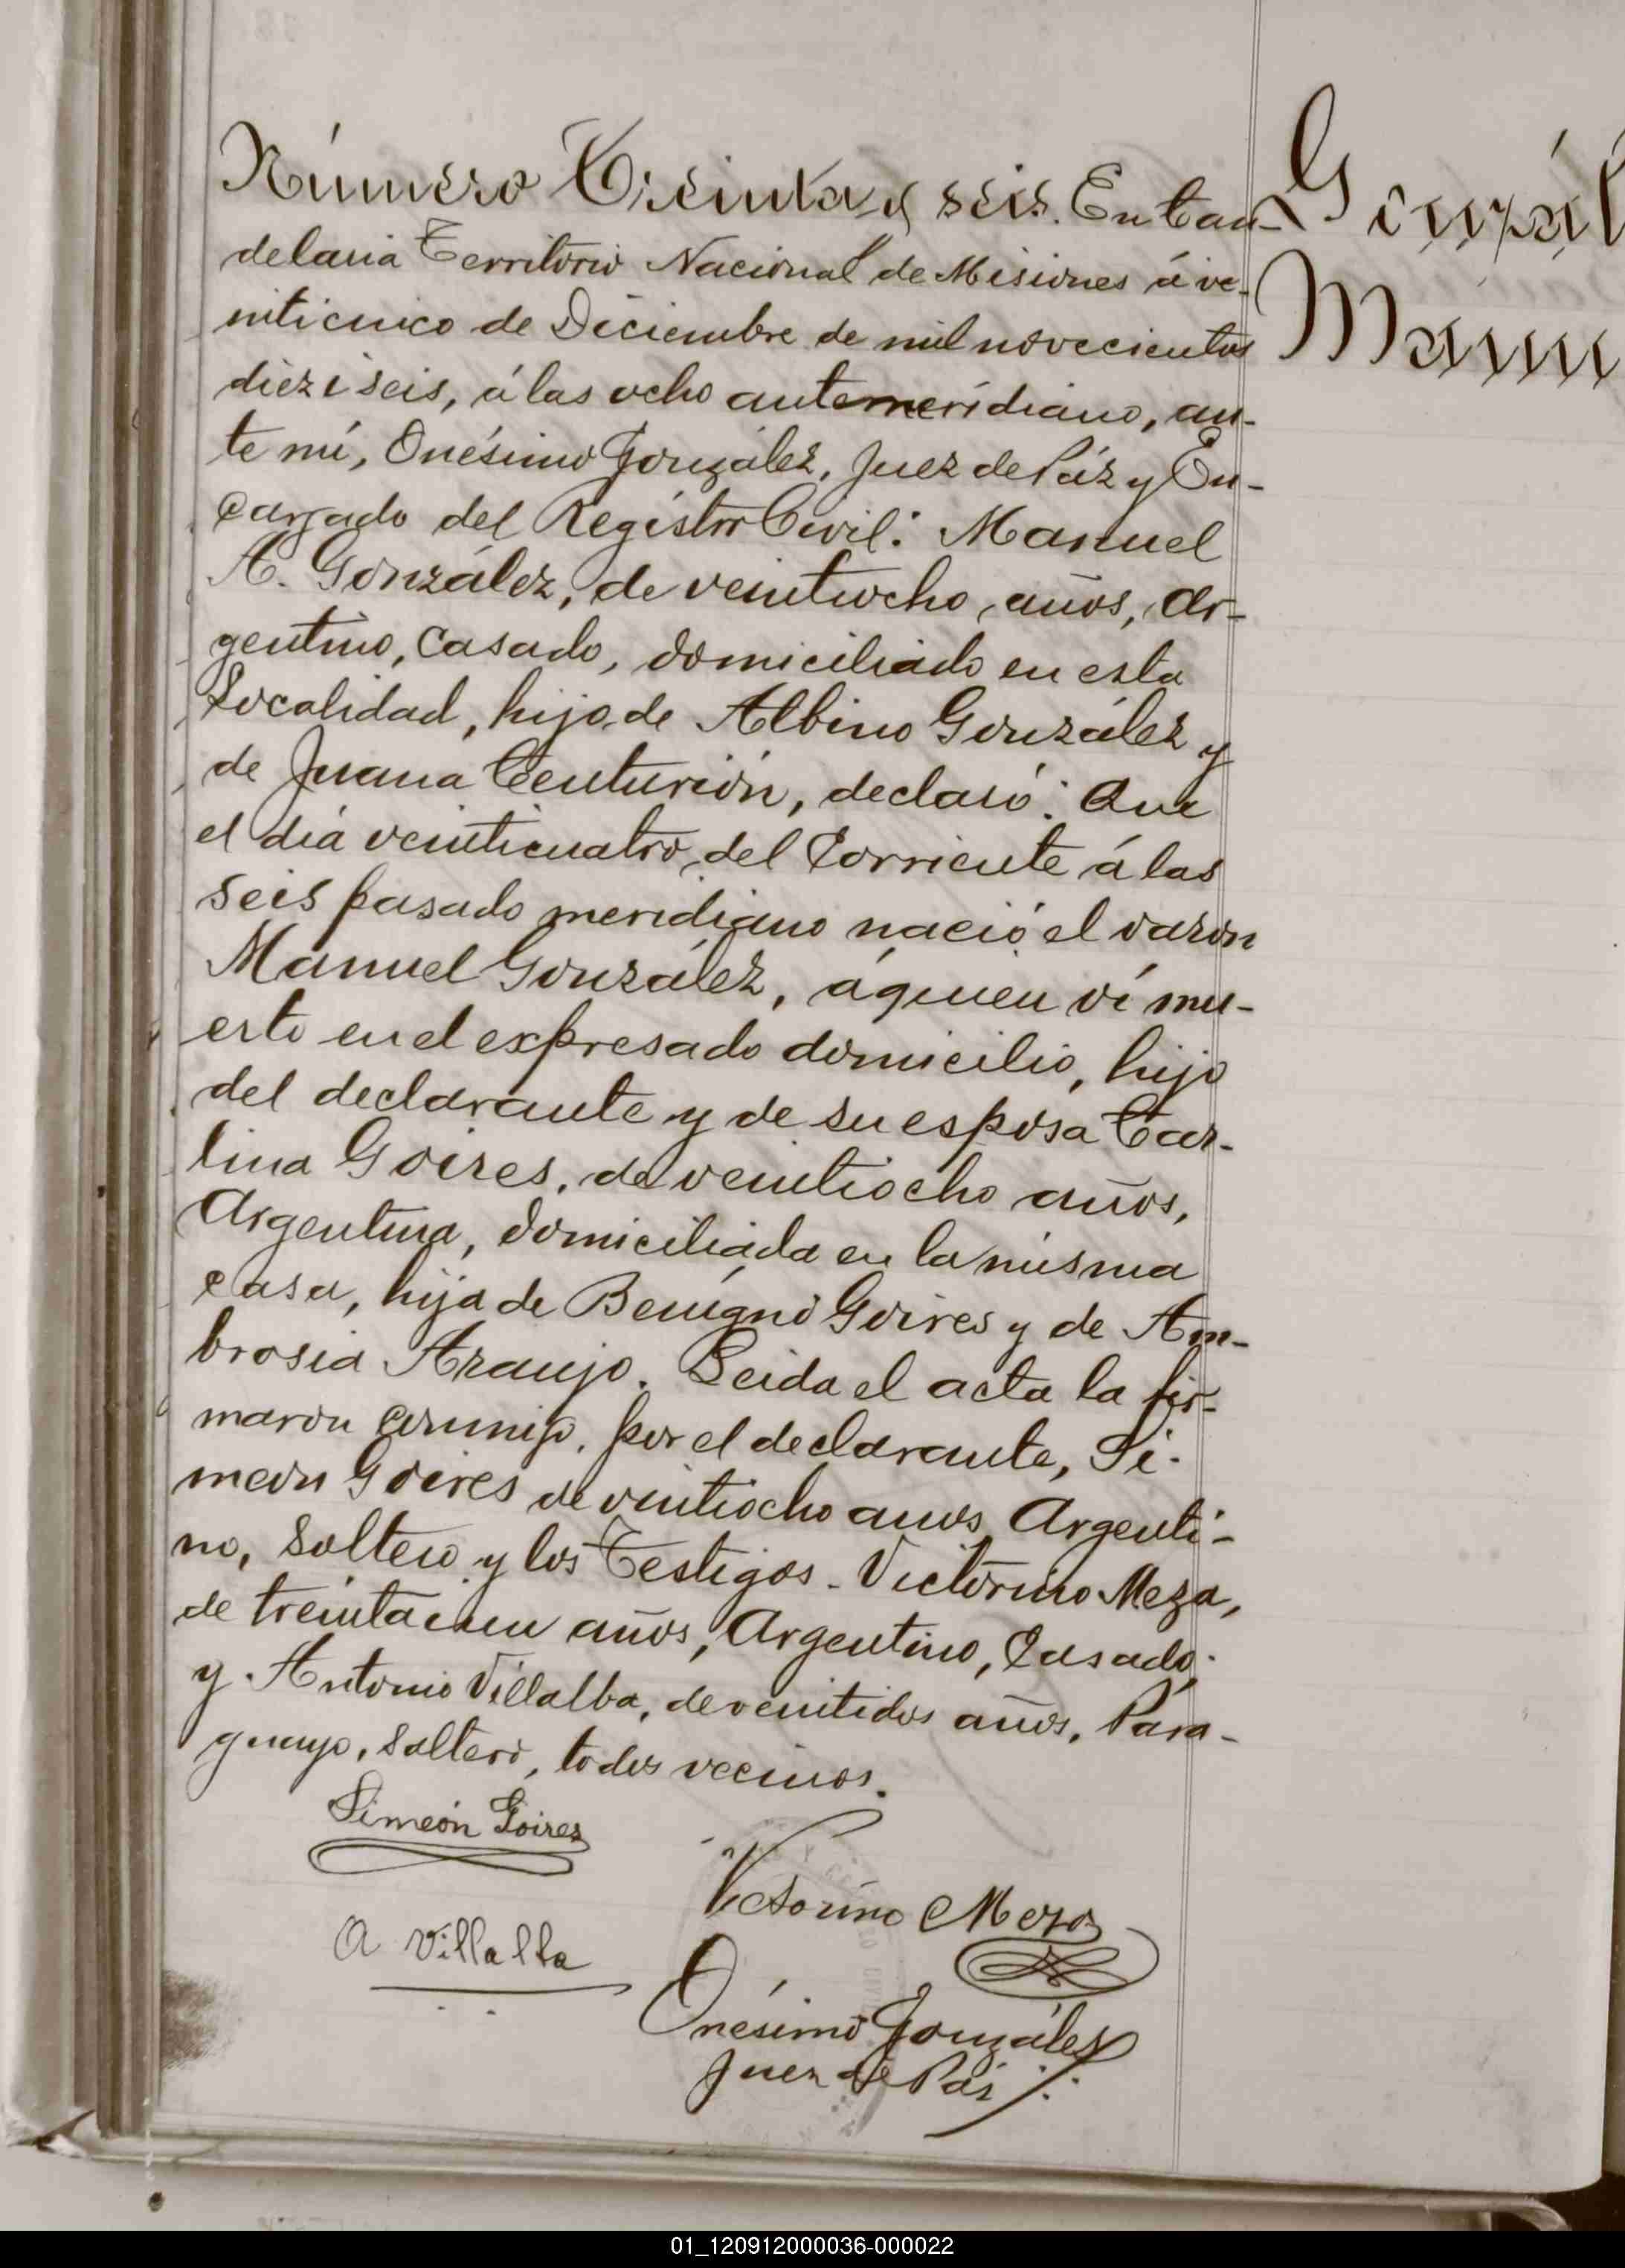 Número Treinta y seis. En Can-
delaria Territorio Nacional de Misiones á ve-
inticinco de Diciembre de mil novecientos
dieziseis, á las ocho antemeridiano, an-
te mí, Onésimo González, Juez de Páz y En-
cargado del Registro Civil: Manuel
A. González, de veintiocho años, Ar-
gentino, Casado, domiciliado en esta
Localidad, hijo de Albino González y
de Juana Centurión, declaró: Que
el día veinticuatro del Corriente á las
seis pasado meridiano nació el varon
Manuel González, á quien ví mu-
erto en el expresado domicilio, hijo
del declarante y de su esposa Car-
lina Goires, de veintiocho años,
Argentina, domiciliada en la misma
casa, hija de Benigno Goires y de Am-
brosia Araujo. Leida el acta la fir-
maron conmigo, por el declarante, Si-
meon Goires de vintiocho anos Argenti-
no, Soltero y los Testigos - Victorino Meza,
de treintaiun años, Argentino, Casado,
y Antonio Villalba, de veintidos años, Para-
guayo, Soltero, todos vecinos.
Simeón Goires
Victorino Meza
A Villalba
Onésimo González
Juez de Páz
Gonzál
Manu
01_120912000036-000022